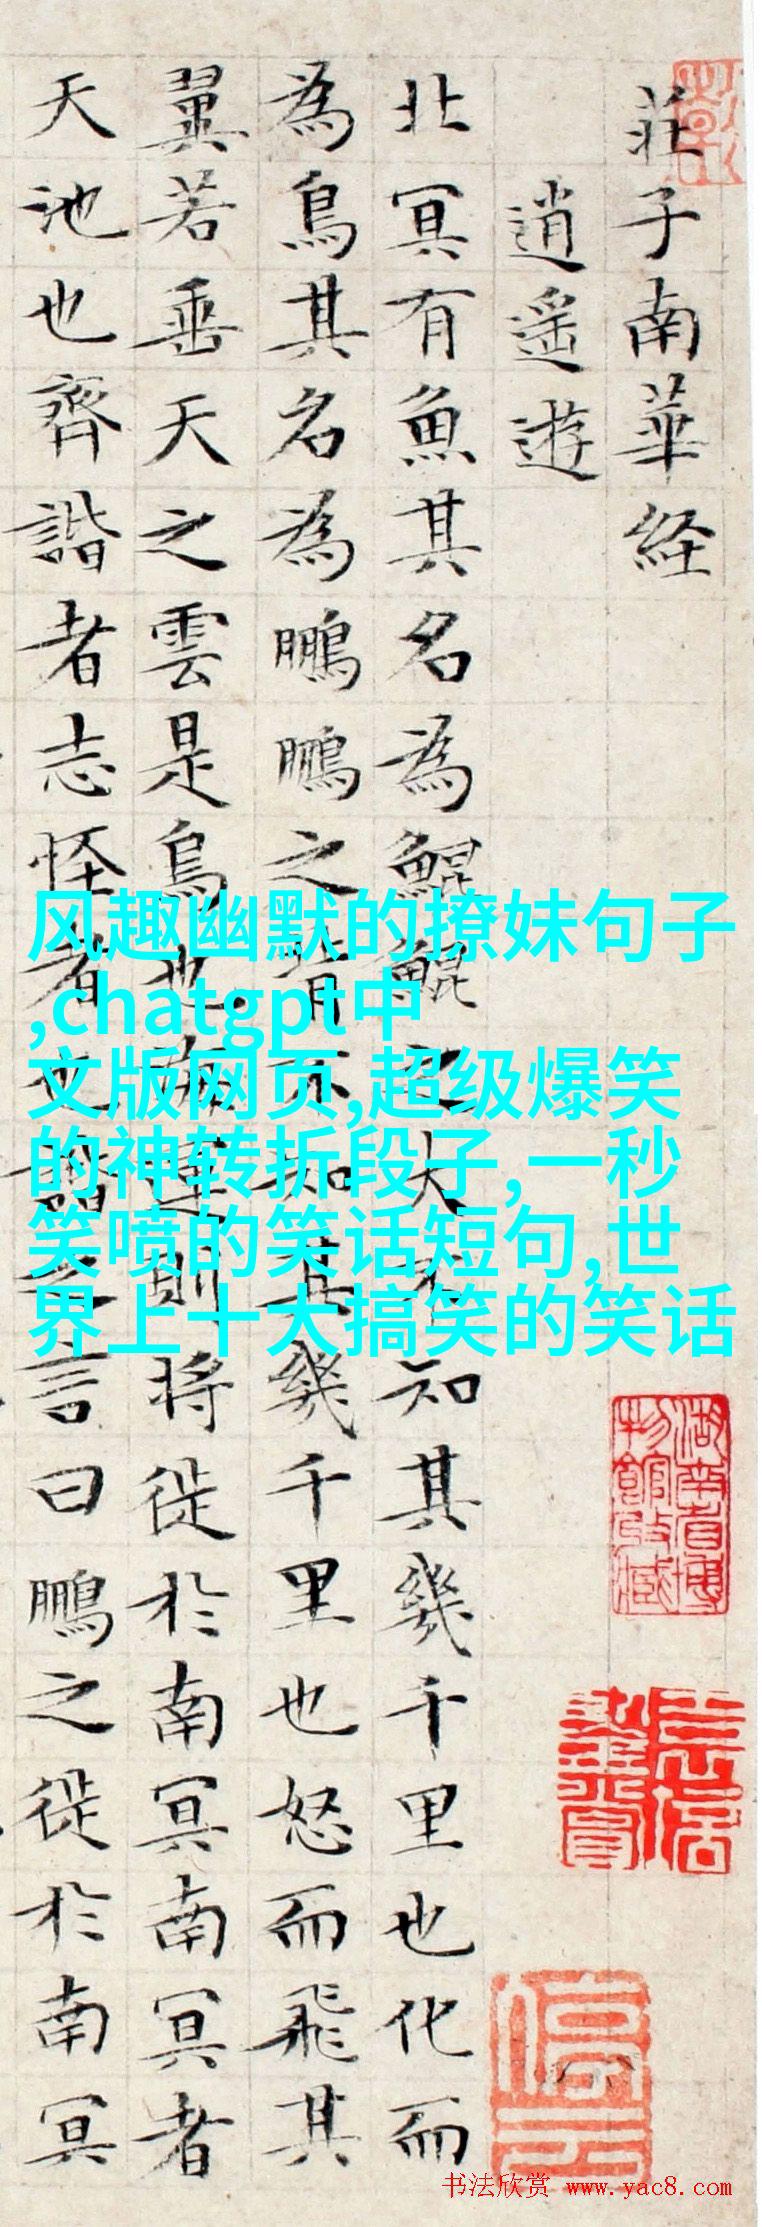 莊子南華経
逍遥遊
北冥有魚其名為鯤鯤之大不知其幾千里也化而
為鳥其名為鵬鵬之背不知其幾千里也怒而飛其
翼若垂天之雲是鳥也海運則将徙於南冥南冥者
天池也齊諧者志怪者也諧之言曰鵬之徙於南冥
风趣幽默的撩妹句子
,chatgpt中
文版网页,超级爆笑
的神转折段子,一秒
笑喷的笑话短句,世
界上十大搞笑的笑话
湖南省博
物館收藏
停云
书法欣赏 www.yac8.com